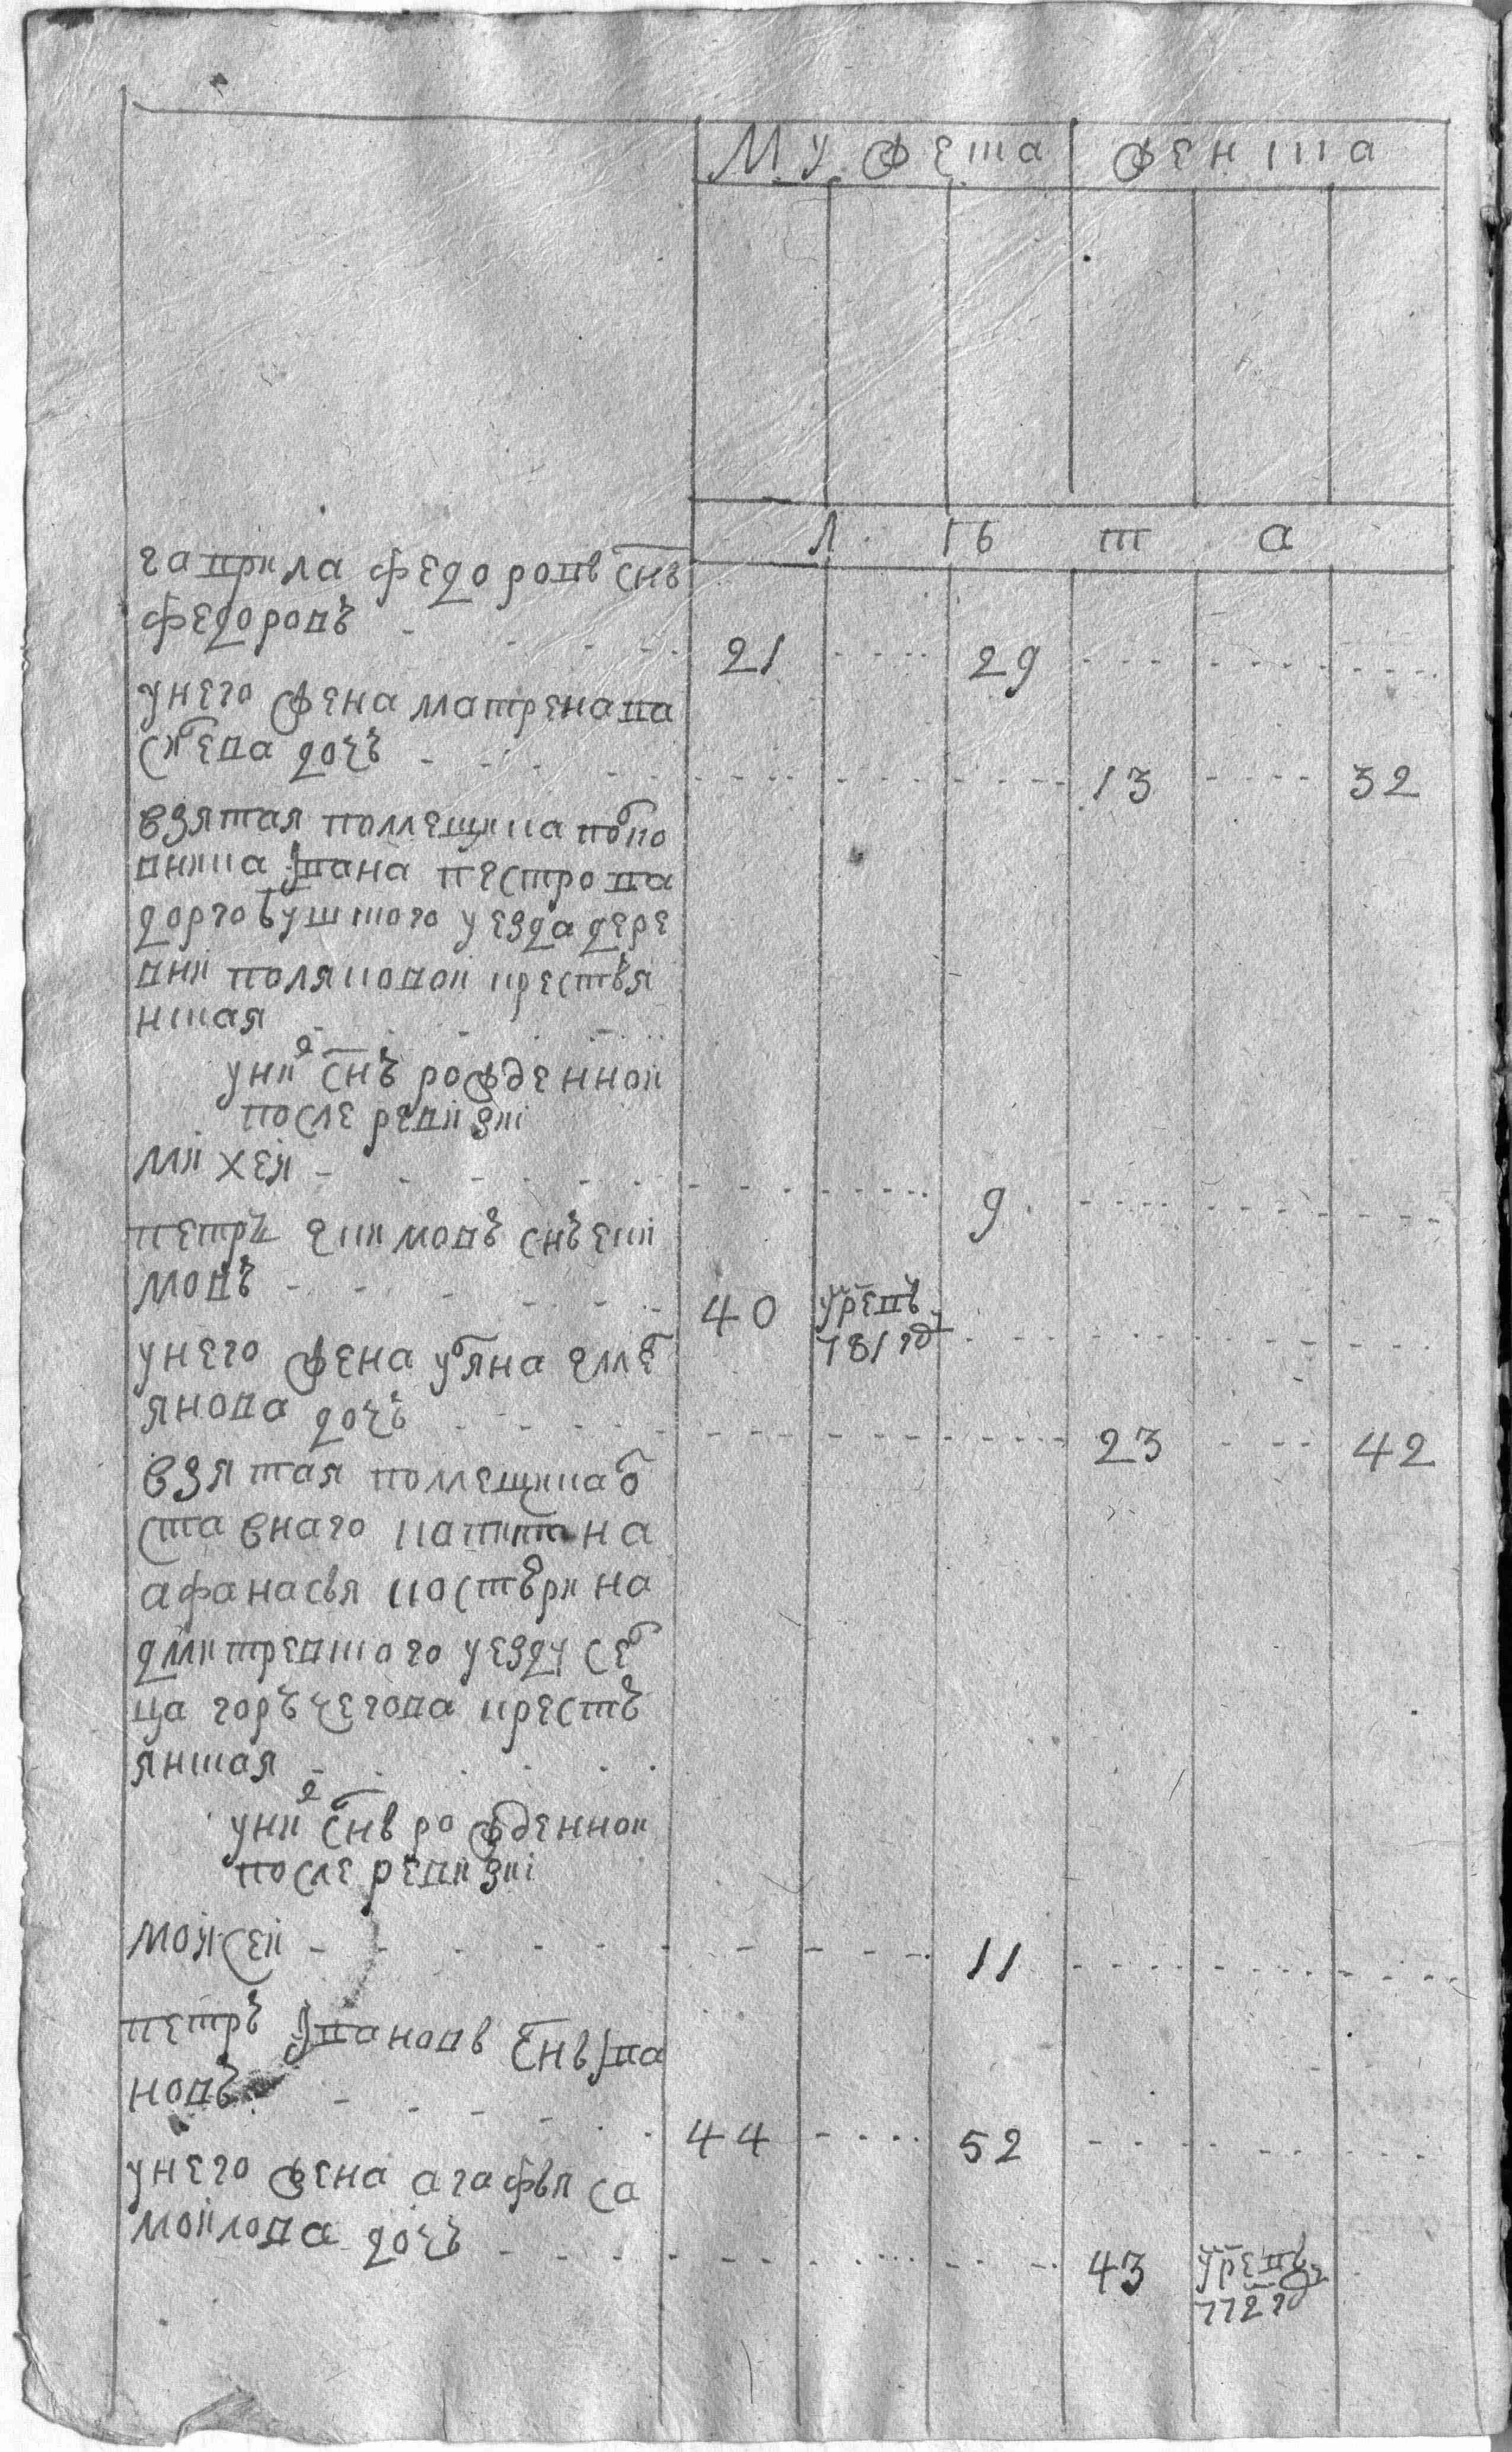 Мужеска женска
лѣта
гаврила федоровъ снъ
федоровъ 21 29
унего жена матрена па
дочъ 13 32
взятая помещика
ивана пестрова
доргобушского уезда дере
вни поляковой крестья
нская
унихъ снъ рожденной
после ревизиі
михей 9
петръ екимовъ снъ еки
мовъ 40 умретъ
781 год
унего жена уляна емел
янова дочъ 23 42
взятая помещика от
ставнаго капитана
афанасья костюрина
дмитревского уезду сел
ца крестъ
янская
унихъ снъ рожденной
после ревизиі
мойсей 11
петръ ивановъ снъ ива
новъ 44 52
унего жена агафья са
мойлова дочъ 43 умретъ
772 год